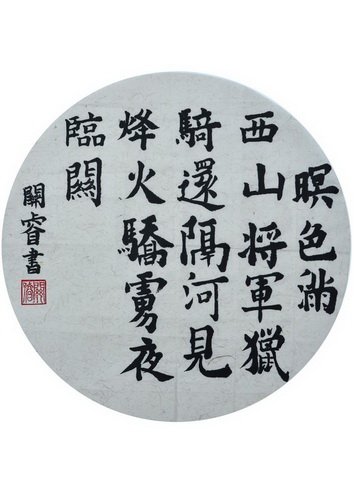 暝色滿
西山将軍獵
騎還隔河見
烽火驕虜夜
臨關
關睿書